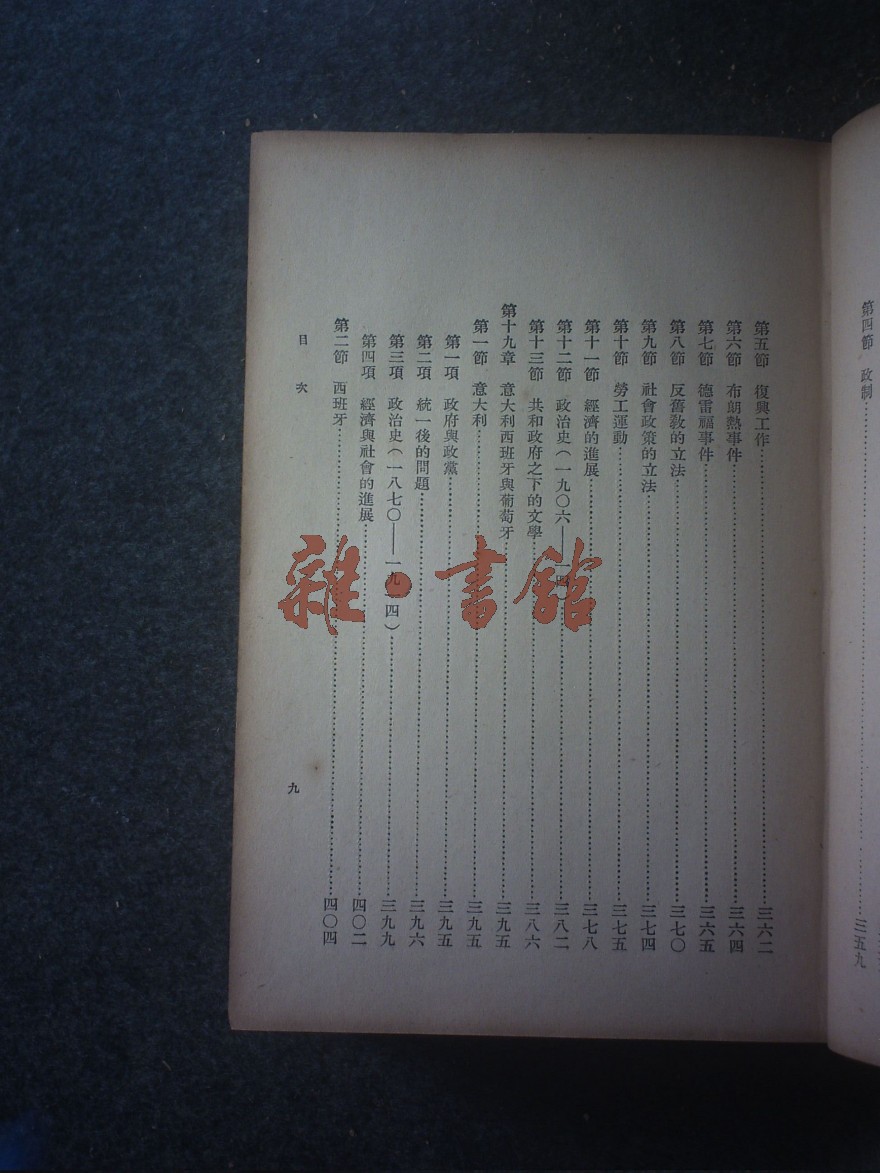 第四節 政制……三五九
第五節 復興工作……三六二
第六節 布朗熱事件……三六四
第七節 德雷福事件……三六五
第八節 反舊敎的立法……三七〇
第九節 社會政策的立法……三七四
第十節 勞工運動……三七五
第十一節 經濟的進展……三七八
第十二節 政治史(一九〇六——一四)……三八二
第十三節 共和政府之下的文學……三八六
第十九章 意大利西班牙與葡萄牙……三九五
第一節 意大利……三九五
第一項 政府與政黨……三九五
第二項 統一後的問題……三九六
第三項 政治史(一八七〇——一九一四)……三九九
第四項 經濟與社會的進展……四〇二
第二節 西班牙……四〇四
目次
九
雜·書館